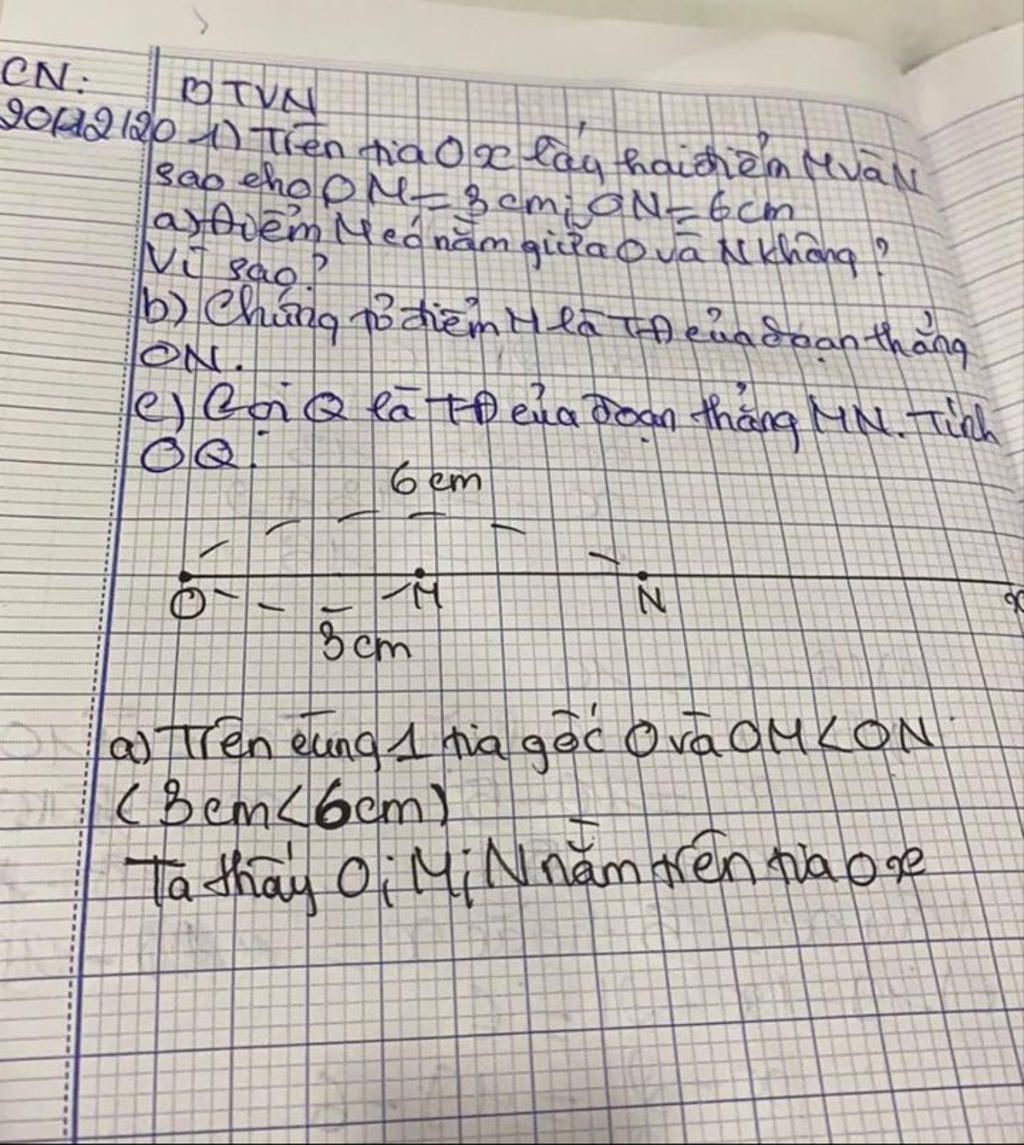 CN:
20/12/20
BTVN
1) Trên tia Ox lấy hai điểm M và N
sao cho OM = 3cm; ON = 6cm
a) Điểm M có nằm giữa O và N không?
Vì sao?
b) Chứng tỏ điểm M là TĐ của đoạn thẳng
ON.
c) Gọi Q là TĐ của đoạn thẳng MN. Tính
OQ.
6cm
O M N x
3cm
a) Trên cùng 1 tia gốc O và OM < ON
(3cm < 6cm)
Ta thấy O; M; N nằm trên tia Ox